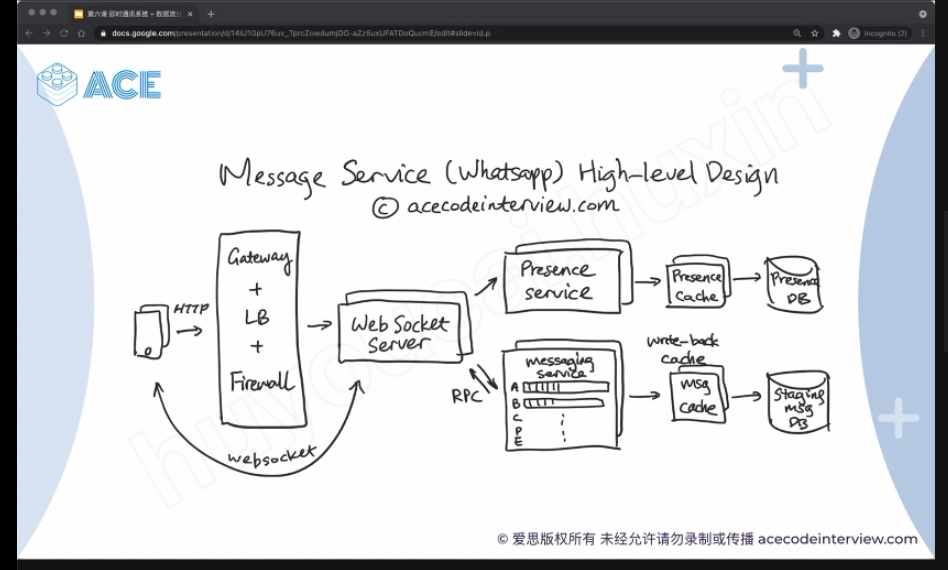 第六课 即时通讯系统 + 数据流
docs.google.com/presentation/d/
Incognito (2)
ACE
Message Service (Whatsapp) High-level Design
© acecodeinterview.com
HTTP
Gateway
+
LB
+
Firewall
Web Socket
Server
websocket
Presence
service
Presence
Cache
Presence
DB
RPC
messaging
service
A
B
C
P
E
write-back
cache
msg
cache
Staging
msg
DB
© 爱思版权所有 未经允许请勿录制或传播 acecodeinterview.com